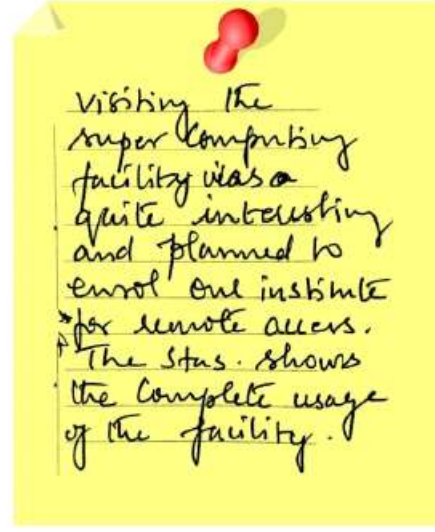 Visiting the
super Computing
facility was a
quite interesting
and planned to
enrol our institute
for remote access.
The Stas. shows
the Complete usage
of the facility.